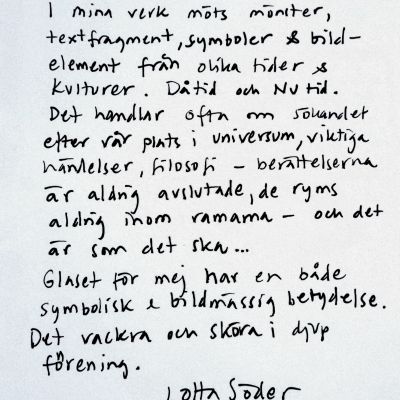 I mina verk möts mönster,
textfragment, symboler & bild-
element från olika tider &
kulturer. Dåtid och Nutid.
Det handlar ofta om sökandet
efter vår plats i universum, viktiga
händelser, filosofi – berättelserna
är aldrig avslutade, de ryms
aldrig inom ramarna – och det
är som det ska...
Glaset för mej har en både
symbolisk & bildmässig betydelse.
Det vackra och sköra i djup
förening.
Lotta Söder